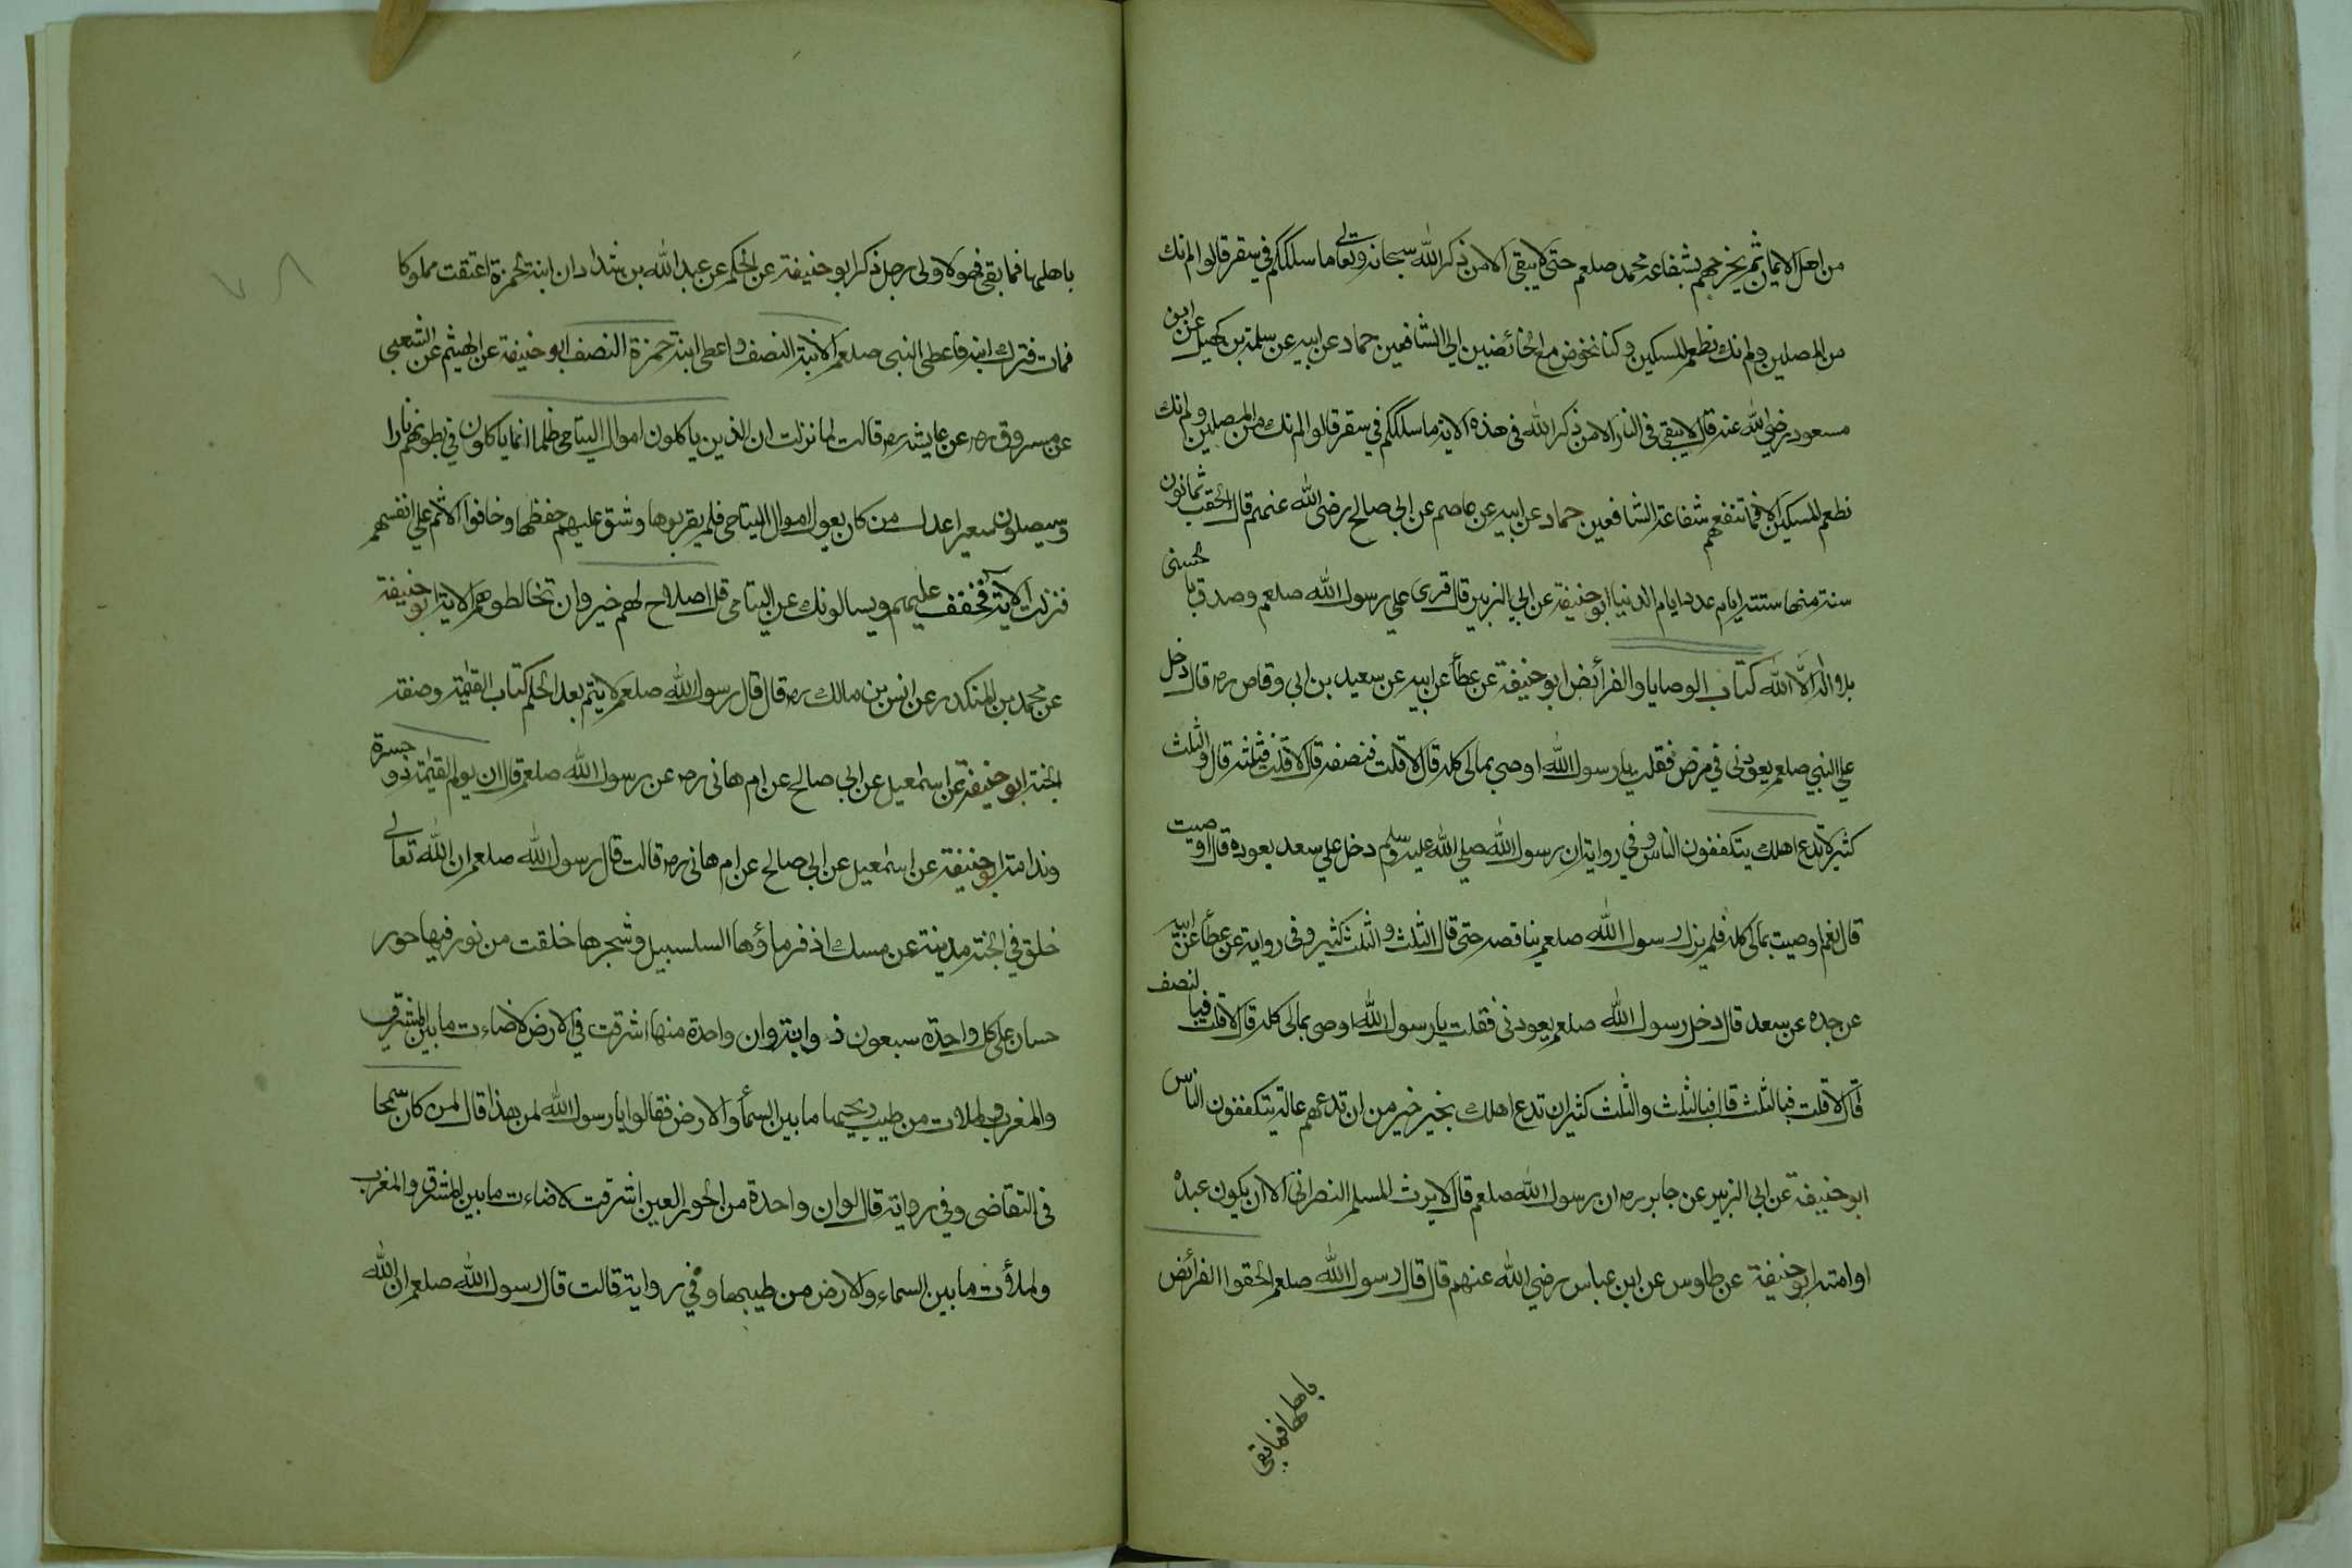 من اهل الايمان ثم يخرجهم بشفاعة محمد صلعم حتى لا يبقى الا من ذكر الله سبحانه وتعالى ما سلككم في سقر قالوا لم نك
من المصلين ولم نك نطعم المسكين وكنا نخوض مع الخائضين الى الشافعين حماد عن ابيه عن سلمة بن كهيل عن ابن
مسعود رضي الله عنه قال لا يبقى في النار الا من ذكر الله في هذه الاية ما سلككم في سقر قالوا لم نك من المصلين ولم نك
نطعم المسكين الا فما تنفعهم شفاعة الشافعين حماد عن ابيه عن عاصم عن ابي صالح رضي الله عنهم قال الحقب ثمانون
سنة منها ستة ايام عدد ايام الدنيا ابو حنيفة عن ابي الزبير قال قرى على رسول الله صلعم وصدق بالحسنى
بلا اله الا الله كتاب الوصايا والفرائض ابو حنيفة عن عطأ عن ابيه عن سعيد بن ابي وقاص رض قال دخل
علي النبي صلعم يعودني في مرض فقلت يا رسول الله اوصي بمالي كله قال لا قلت فنصفه قال لا قلت فثلثه قال والثلث
كثير لا تدع اهلك يتكففون الناس وفي رواية ان رسول الله صلي الله عليه وسلم دخل علي سعد يعوده قال اوصيت
قال نعم اوصيت بمالي كله فلم يزل رسول الله صلعم يناقصه حتى قال الثلث والثلث كثير وفي رواية عن عطأ عن ابيه
عن جده عن سعد قال دخل رسول الله صلعم يعودني فقلت يا رسول الله اوصي بمالي كله قال لا قلت فبالنصف
قال لا قلت فبالثلث قال فبالثلث والثلث كثير ان تدع اهلك بخير خير من ان تدعهم عالة يتكففون الناس
ابو حنيفة عن ابي الزبير عن جابر رض ان رسول الله صلعم قال لا يرث المسلم النصراني الا ان يكون عبده
او امته ابو حنيفة عن طاوس عن ابن عباس رضي الله عنهم قال قال رسول الله صلعم الحقوا الفرائض
باهلها فما بقي
باهلها فما بقي فهو لاولى رجل ذكر ابو حنيفة عن الحكم عن عبد الله بن شداد ان ابنة لحمزة اعتقت مملوكا
فمات فترك ابنة فاعطى النبي صلعم الابنة النصف واعطى ابنة حمزة النصف ابو حنيفة عن الهيثم عن الشعبي
عن مسروق رض عن عايشة رض قالت لما نزلت ان الذين ياكلون اموال اليتامى ظلما انما ياكلون في بطونهم نارا
وسيصلون سعيرا عدل من كان يعول اموال اليتامى فلم يقربوها وشق عليهم حفظها وخافوا الاثم علي انفسهم
فنزلت الاية فخفف عليهم ويسالونك عن اليتامى قل اصلاح لهم خير وان تخالطوهم الاية ابو حنيفة
عن محمد بن المنكدر عن انس بن مالك رض قال قال رسول الله صلعم لا يتم بعد الحلم كتاب القيمة وصفة
الجنة ابو حنيفة عن اسمعيل عن ابي صالح عن ام هاني رض عن رسول الله صلعم قال ان يوم القيمة ذو حسرة
وندامة ابو حنيفة عن اسمعيل عن ابي صالح عن ام هاني رض قالت قال رسول الله صلعم ان الله تعالى
خلق في الجنة مدينة عن مسك اذفر ماؤها السلسبيل وشجرها خلقت من نور فيها حور
حسان على كل واحدة سبعون ذوابة وان واحدة منها اشرقت في الارض لاضاءت ما بين المشرق
والمغرب ولملات من طيب ريحها ما بين السمأ والارض فقالوا يا رسول الله لمن هذا قال لمن كان سمحا
في التقاضى وفي رواية قال لو ان واحدة من الحور العين اشرقت لاضاءت ما بين المشرق والمغرب
ولملأت ما بين السماء والارض من طيبها وفي رواية قالت قال رسول الله صلعم ان لله